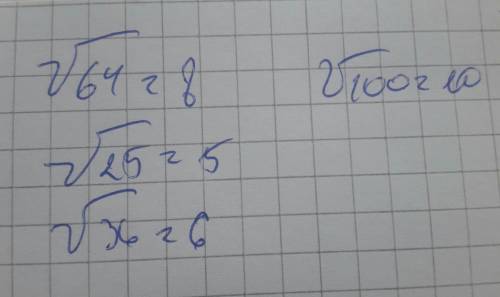 √64 = 8
√100 = 10
√25 = 5
√36 = 6